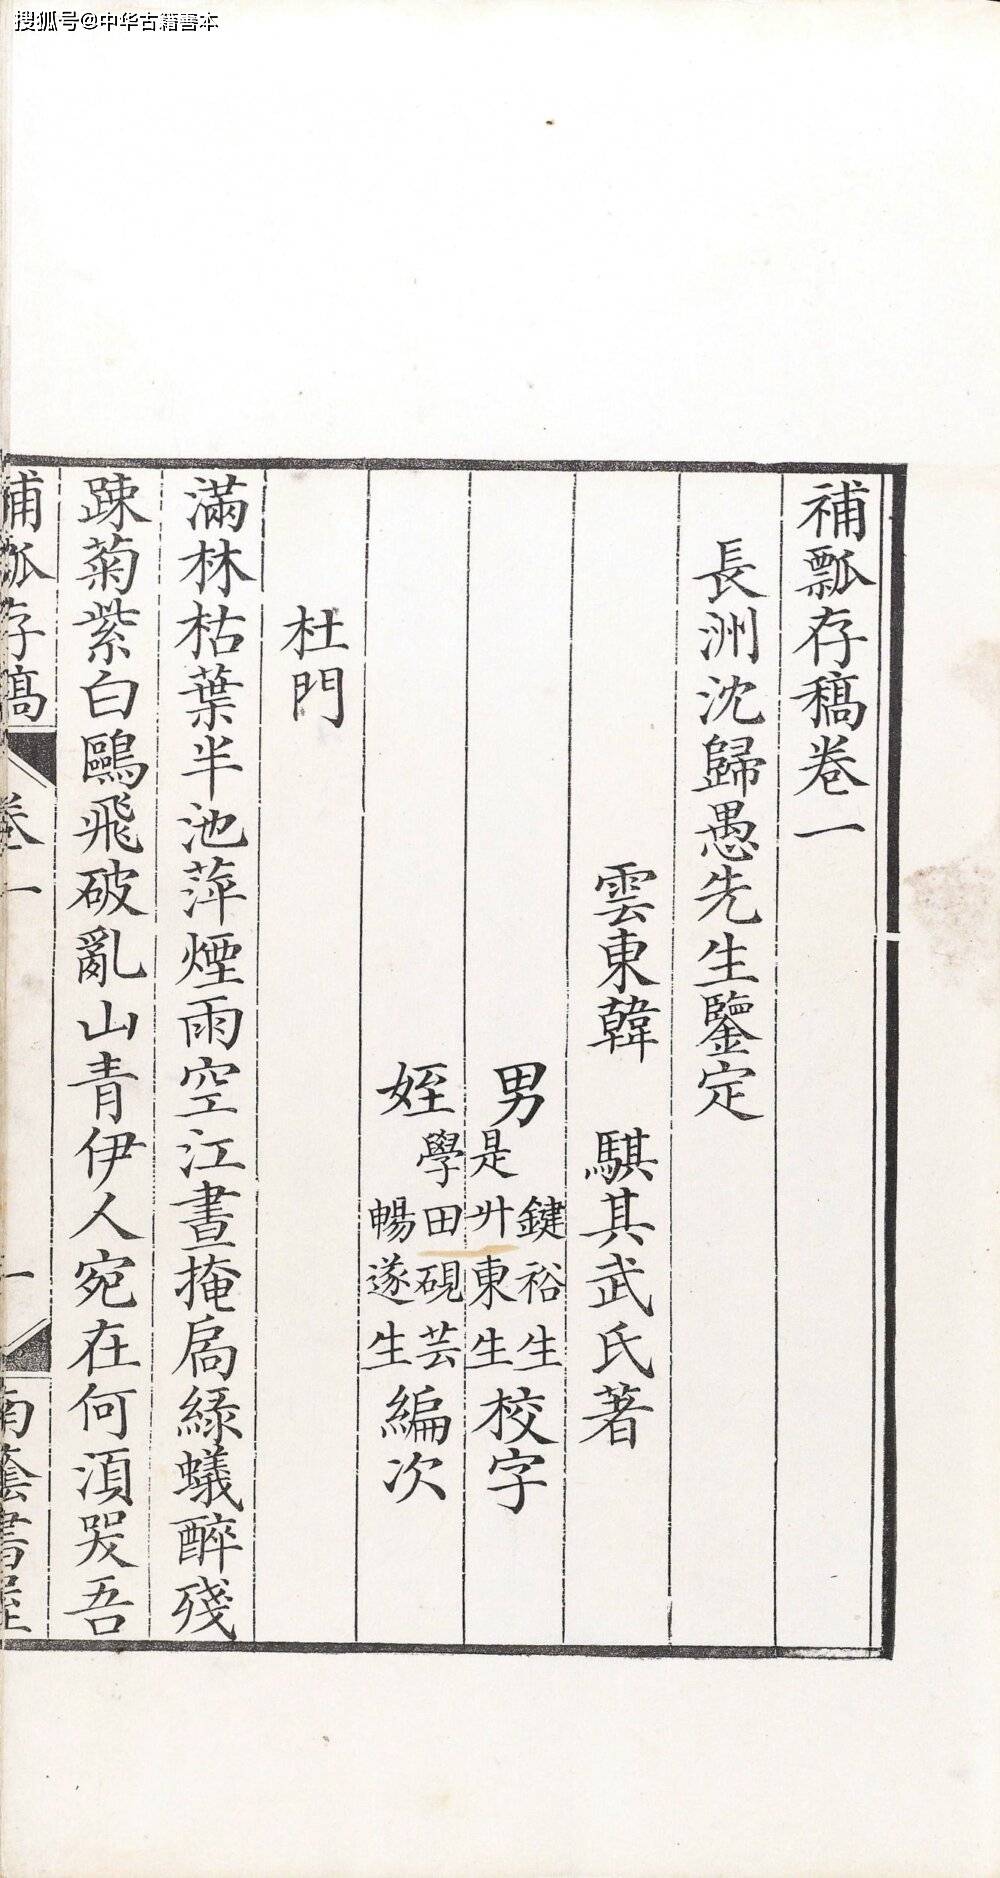 搜狐号@中华古籍善本
補瓢存稿卷一
長洲沈歸愚先生鑒定
雲東韓 騏其武氏著
男 鍵裕生 是升東生 校字
姪 學田硯芸 暢遂生 編次
杜門
滿林枯葉半池萍煙雨空江晝掩扃綠蟻醉殘
踈菊紫白鷗飛破亂山青伊人宛在何湏哭吾
補瓢存稿 卷一 一 南 書屋